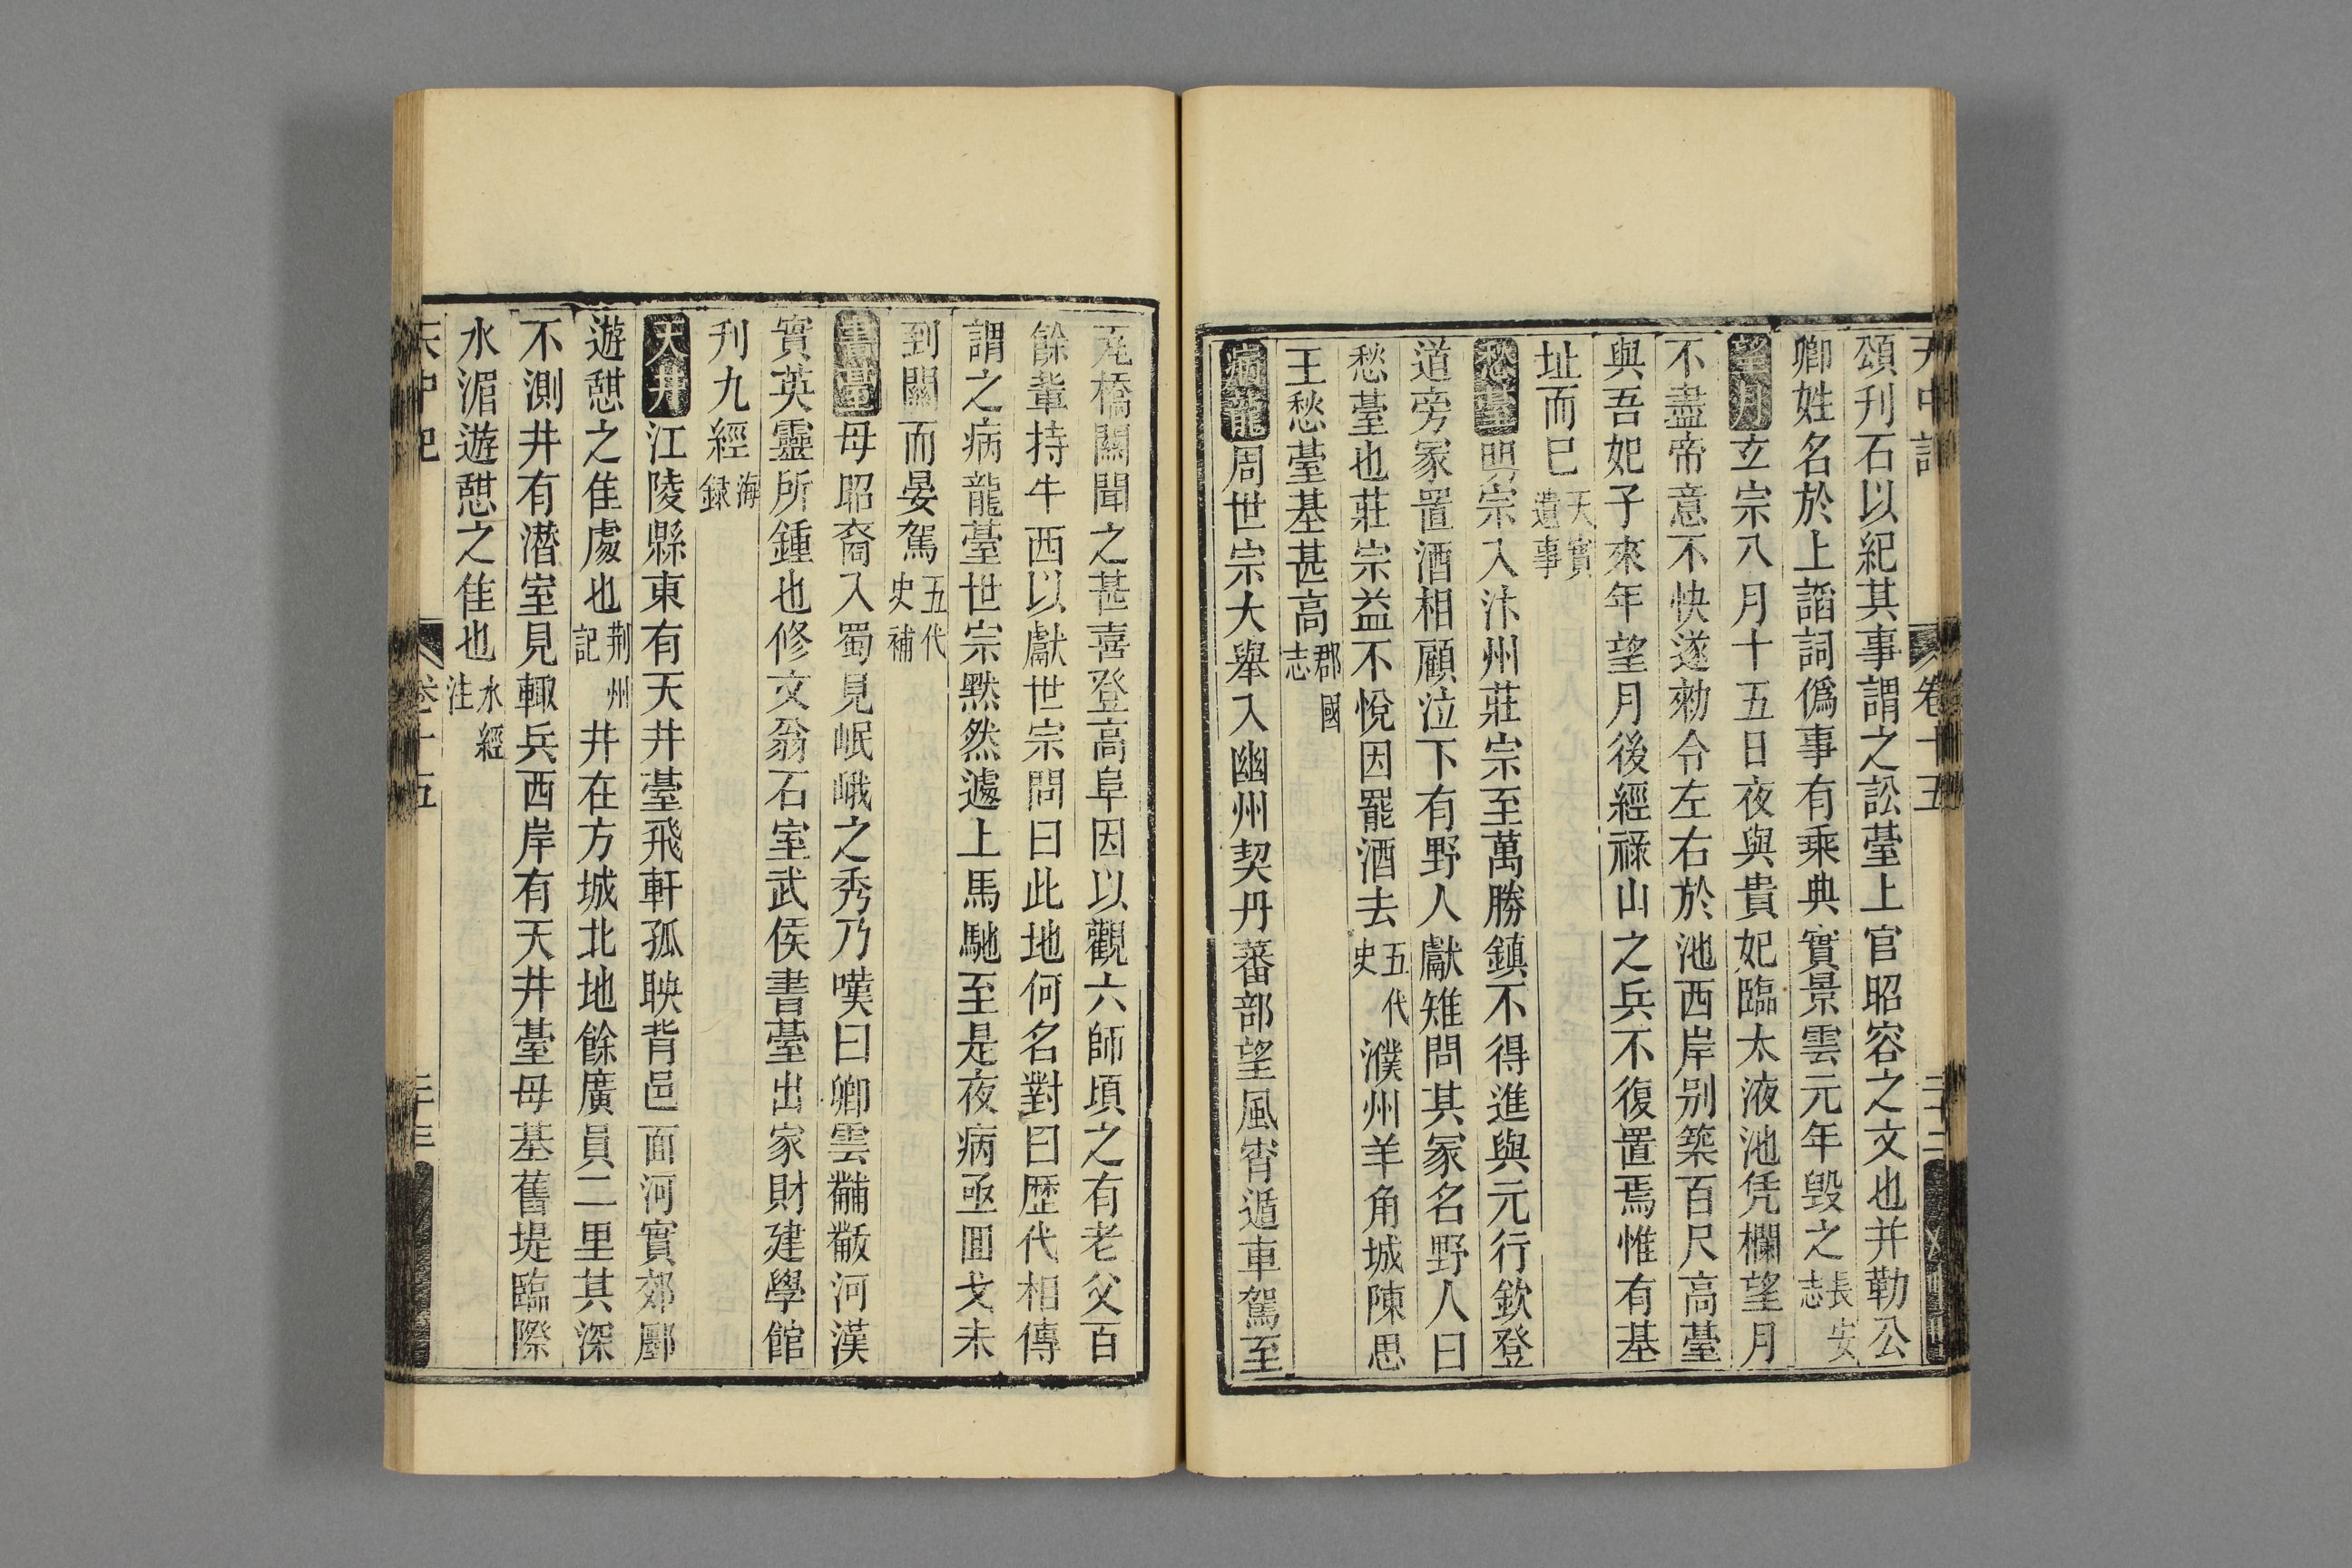 天中記 卷十五 二十二
頌刋石以紀其事謂之訟䑓上官昭容之文也并勒公
卿姓名於上謟詞僞事有乘典實景雲元年毁之長安志
望月玄宗八月十五日夜與貴妃臨太液池凭欄望月
不盡帝意不快遂勑令左右於池西岸别築百尺高䑓
與吾妃子來年望月後經祿山之兵不復置焉惟有基
址而巳天寶遺事
愁䑓明宗入汴州莊宗至萬勝鎮不得進與元行欽登
道旁冢置酒相顧泣下有野人獻雉問其冢名野人曰
愁䑓也莊宗益不悅因罷酒去五代史 濮州羊角城陳思
王愁䑓基甚高郡國志
病龍周世宗大舉入幽州契丹蕃部望風宵遁車駕至
瓦橋關聞之甚喜登高阜因以觀六師頃之有老父百
餘輩持牛酉以獻世宗問曰此地何名對曰歷代相傳
謂之病龍䑓世宗黙然遽上馬馳至是夜病亟囬戈未
到關而晏駕五代史補
書䑓母昭裔入蜀見岷峨之秀乃嘆曰卿雲黼黻河漢
實英靈所鍾也修文翁石室武侯書䑓出家財建學館
刋九經海録
天井江陵縣東有天井䑓飛軒孤映背邑面河實郊鄽
遊憇之佳處也荆州記 井在方城北地餘廣員二里其深
不測井有潛室見輙兵西岸有天井䑓母基舊堤臨際
水湄遊憇之佳也水經注
天中記 卷十五 二十三